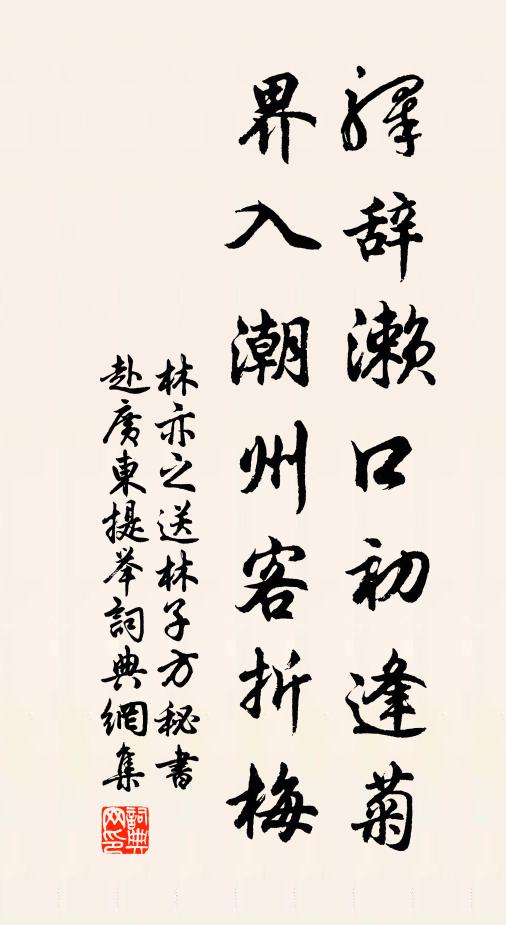 驛辞瀬口初逢菊
界入潮州客折梅
林亦之送林子方秘書
赴廣東提举詞典網集
詞典网印